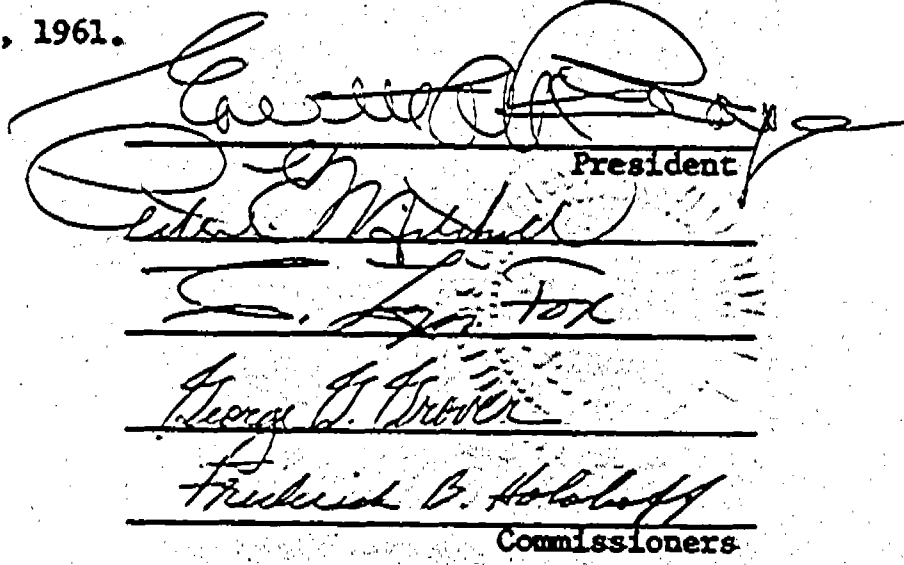 , 1961.
President
Peter E. Mitchell
Fox
George G. Grover
Frederick B. Holoboff
Commissioners